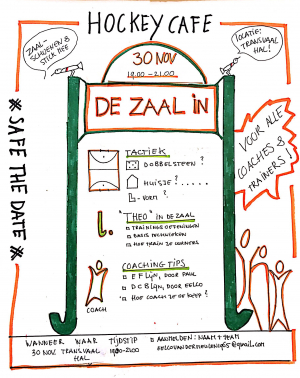 HOCKEY CAFE
ZAAL-
SCHOENEN &
STICK MEE
30 NOV
19.00-21.00
LOCATIE:
TRANSVAAL
HAL!
DE ZAAL IN
* SAFE THE DATE *
VOOR ALLE
COACHES &
TRAINERS!
TACTIEK
DOBBELSTEEN?
HUISJE?......
L-VORM?
"THEO" IN DE ZAAL
TRAININGS OEFENINGEN
BASIS
HOE TRAIN JE CORNERS
COACHING TIPS
E F LIJN, DOOR PAUL
D C B LIJN, DOOR EELCO
HOE COACH JE
COACH
WANNEER WAAR TIJDSTIP
30 NOV. TRANSVAAL 19.00-21.00
HAL
AANMELDEN: NAAM + TEAM
@gmail.com